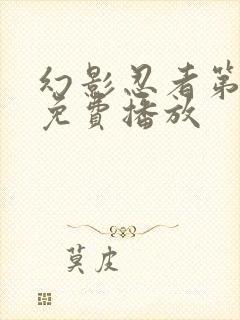 幻影忍者第
免費播放
莫皮